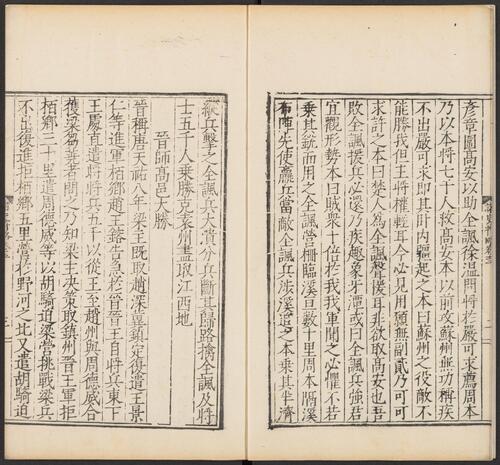 彥章圍高安以助全諷徐溫問將於嚴可求薦周本
乃以本將七千人救高安本以前攻蘇州無功稱疾
不出嚴可求即其卧内驅起之本曰蘇州之役敵不
能勝我但主將權輕耳今必見用願無副貳乃可可
求許之本曰楚人為全諷聲援耳非欲取高安也吾
敗全諷援兵必還乃疾趣象牙潭或曰全諷兵強君
宜觀形勢本曰賊衆十倍於我我軍聞之必懼不若
乗其銳而用之全諷營柵臨溪亘數十里周本隔溪
布陣先使羸兵當敵全諷兵涉溪追之本乗其半濟
縱兵擊之全諷兵大潰分兵斷其歸路擒全諷及將
士五千人乗勝克袁州盡取江西地
晉師高邑大勝
晉稱唐天祐八年梁主既取趙深冀鎮定復遣王景
仁等進軍栢鄉趙王鎔告急於晉晉王自將兵東下
王處直遣將將兵五千以從王至趙州與周德威合
獲梁芻蕘者問之乃知梁主決策取鎮州晉王軍拒
栢鄉三十里遣周德威等以胡騎迫梁營挑戰梁兵
不出復進拒栢鄉五里營於野河之北又遣胡騎迫